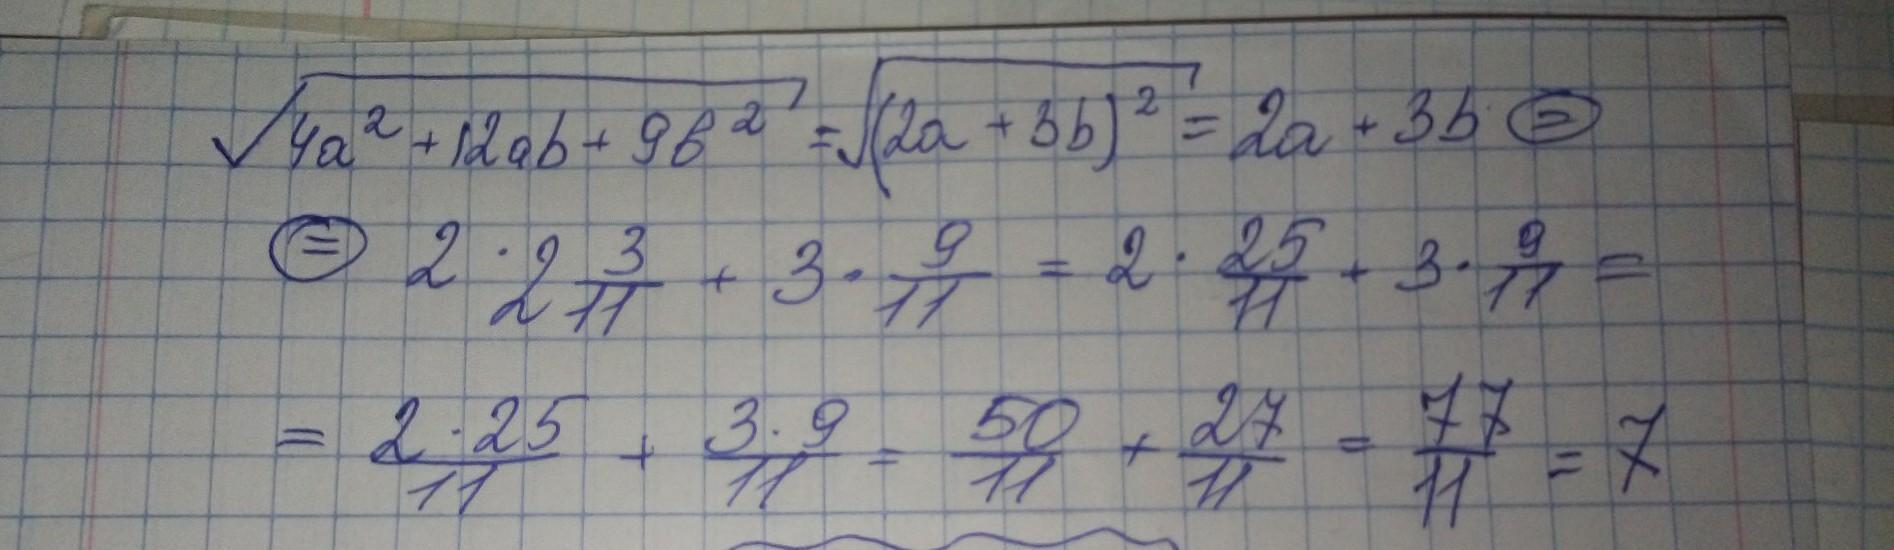 √(4a² + 12ab + 9b²) = √((2a + 3b)²) = 2a + 3b =
= 2 · 2 3/11 + 3 · 9/11 = 2 · 25/11 + 3 · 9/11 =
= 2 · 25/11 + 3 · 9/11 = 50/11 + 27/11 = 77/11 = 7